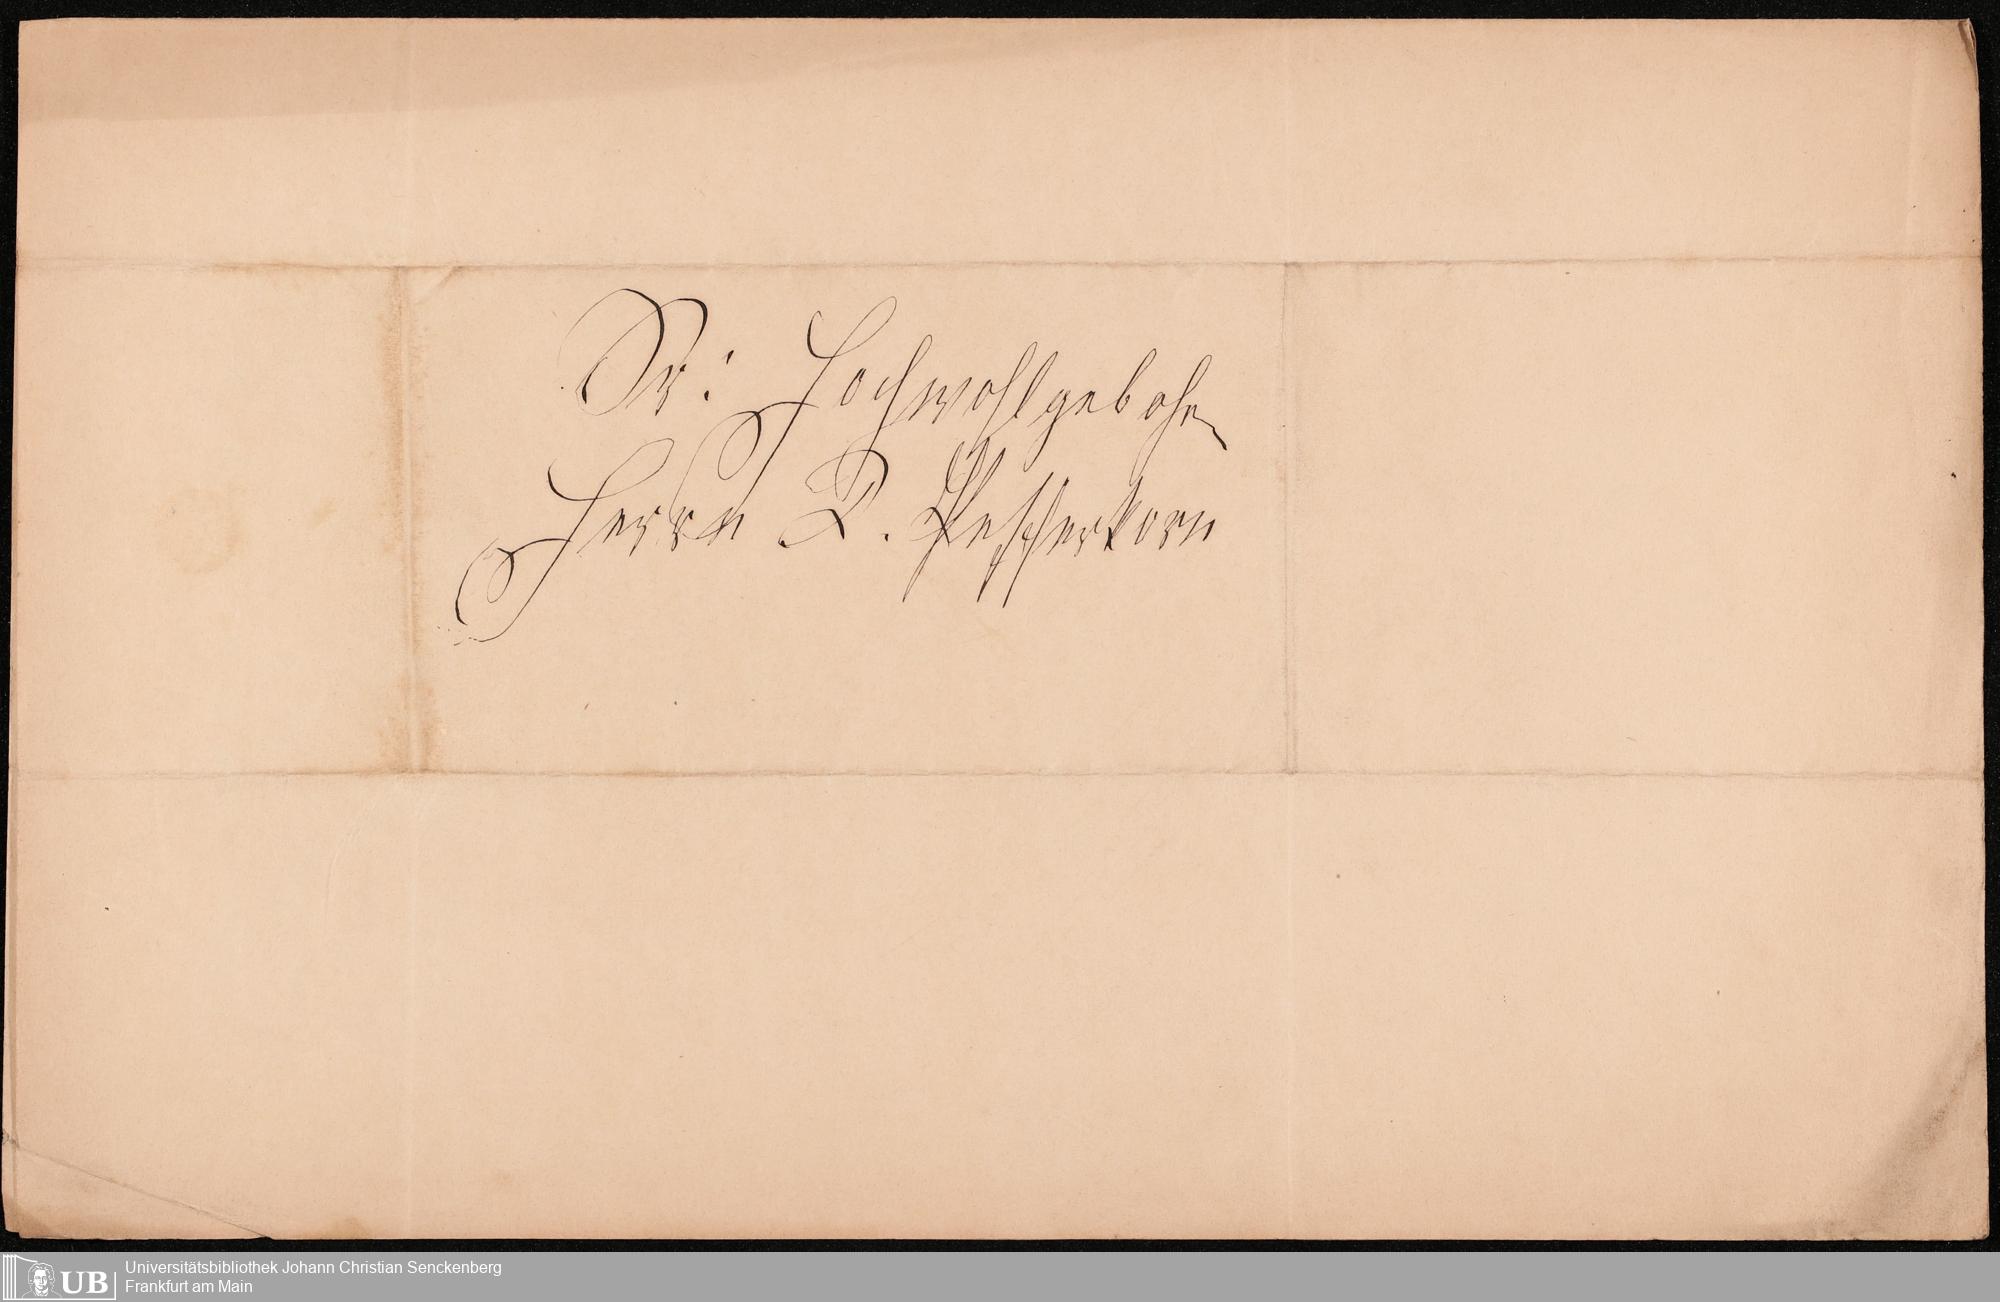 Sr: Hochwohlgebohrn
Herrn D. Pfefferkorn
UB
Universitätsbibliothek Johann Christian Senckenberg
Frankfurt am Main